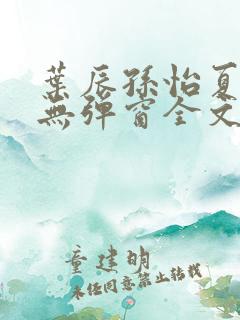 葉辰孫怡夏
無彈窗全文
童建明
未經同意禁止轉載